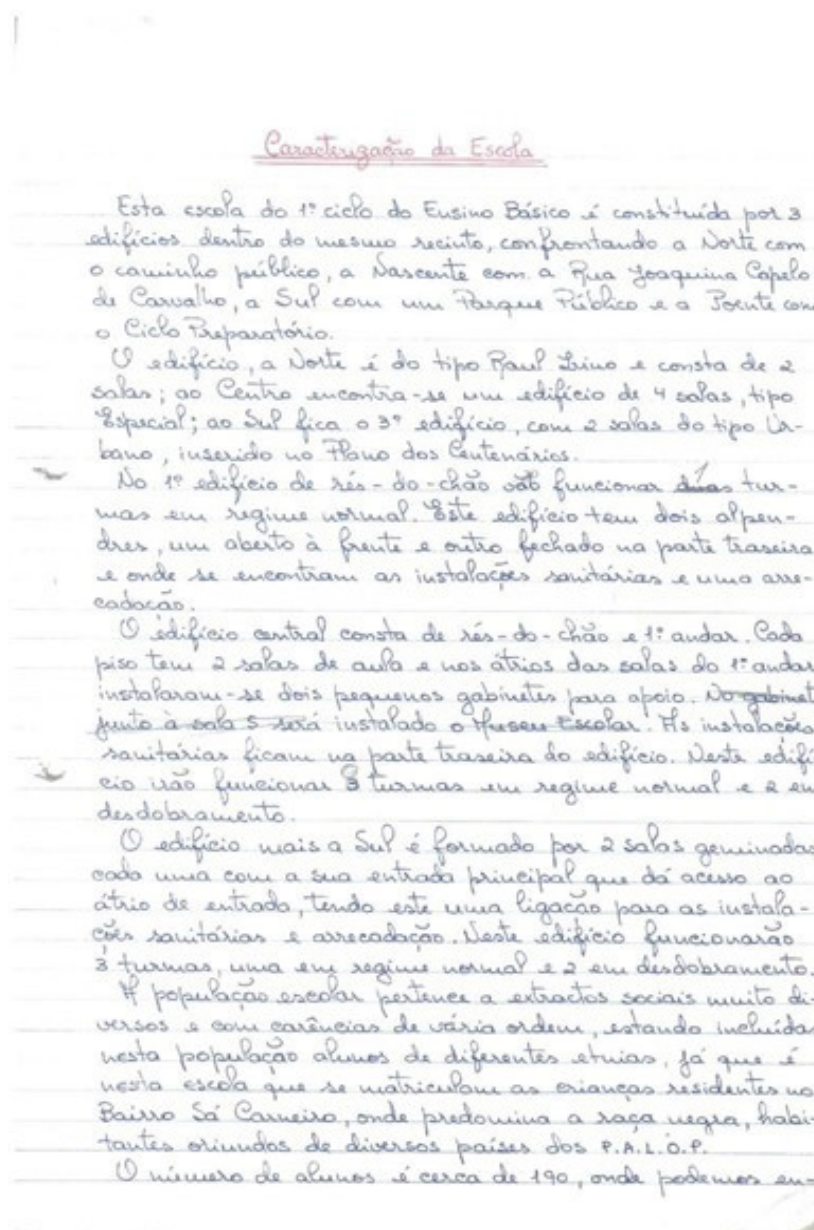 Caracterização da Escola
Esta escola do 1º ciclo do Ensino Básico é constituída por 3
edifícios dentro do mesmo recinto, confrontando a Norte com
o caminho público, a Nascente com a Rua Joaquina Capelo
de Carvalho, a Sul com um Parque Público e a Poente com
o Ciclo Preparatório.
O edifício, a Norte é do tipo Raul Lino e consta de 2
salas; ao Centro encontra-se um edifício de 4 salas, tipo
Especial; ao Sul fica o 3º edifício, com 2 salas do tipo Ur-
bano, inserido no Plano dos Centenários.
No 1º edifício de rés-do-chão vão funcionar duas tur-
mas em regime normal. Este edifício tem dois alpen-
dres, um aberto à frente e outro fechado na parte traseira
e onde se encontram as instalações sanitárias e uma arre-
cadação.
O edifício central consta de rés-do-chão e 1º andar. Cada
piso tem 2 salas de aula e nos átrios das salas do 1º andar
instalaram-se dois pequenos gabinetes para apoio. No gabinet
junto à sala 5 será instalado o Museu Escolar. As instalações
sanitárias ficam na parte traseira do edifício. Neste edifí
cio irão funcionar 3 turmas em regime normal e 2 em
desdobramento.
O edifício mais a Sul é formado por 2 salas geminadas
cada uma com a sua entrada principal que dá acesso ao
átrio de entrada, tendo este uma ligação para as instala-
ções sanitárias e arrecadação. Neste edifício funcionarão
3 turmas, uma em regime normal e 2 em desdobramento.
A população escolar pertence a extractos sociais muito di-
versos e com carências de vária ordem, estando incluída
nesta população alunos de diferentes etnias, já que é
nesta escola que se matriculam as crianças residentes no
Bairro Sá Carneiro, onde predomina a raça negra, habi-
tantes oriundos de diversos países dos P.A.L.O.P.
O número de alunos é cerca de 190, onde podemos en-